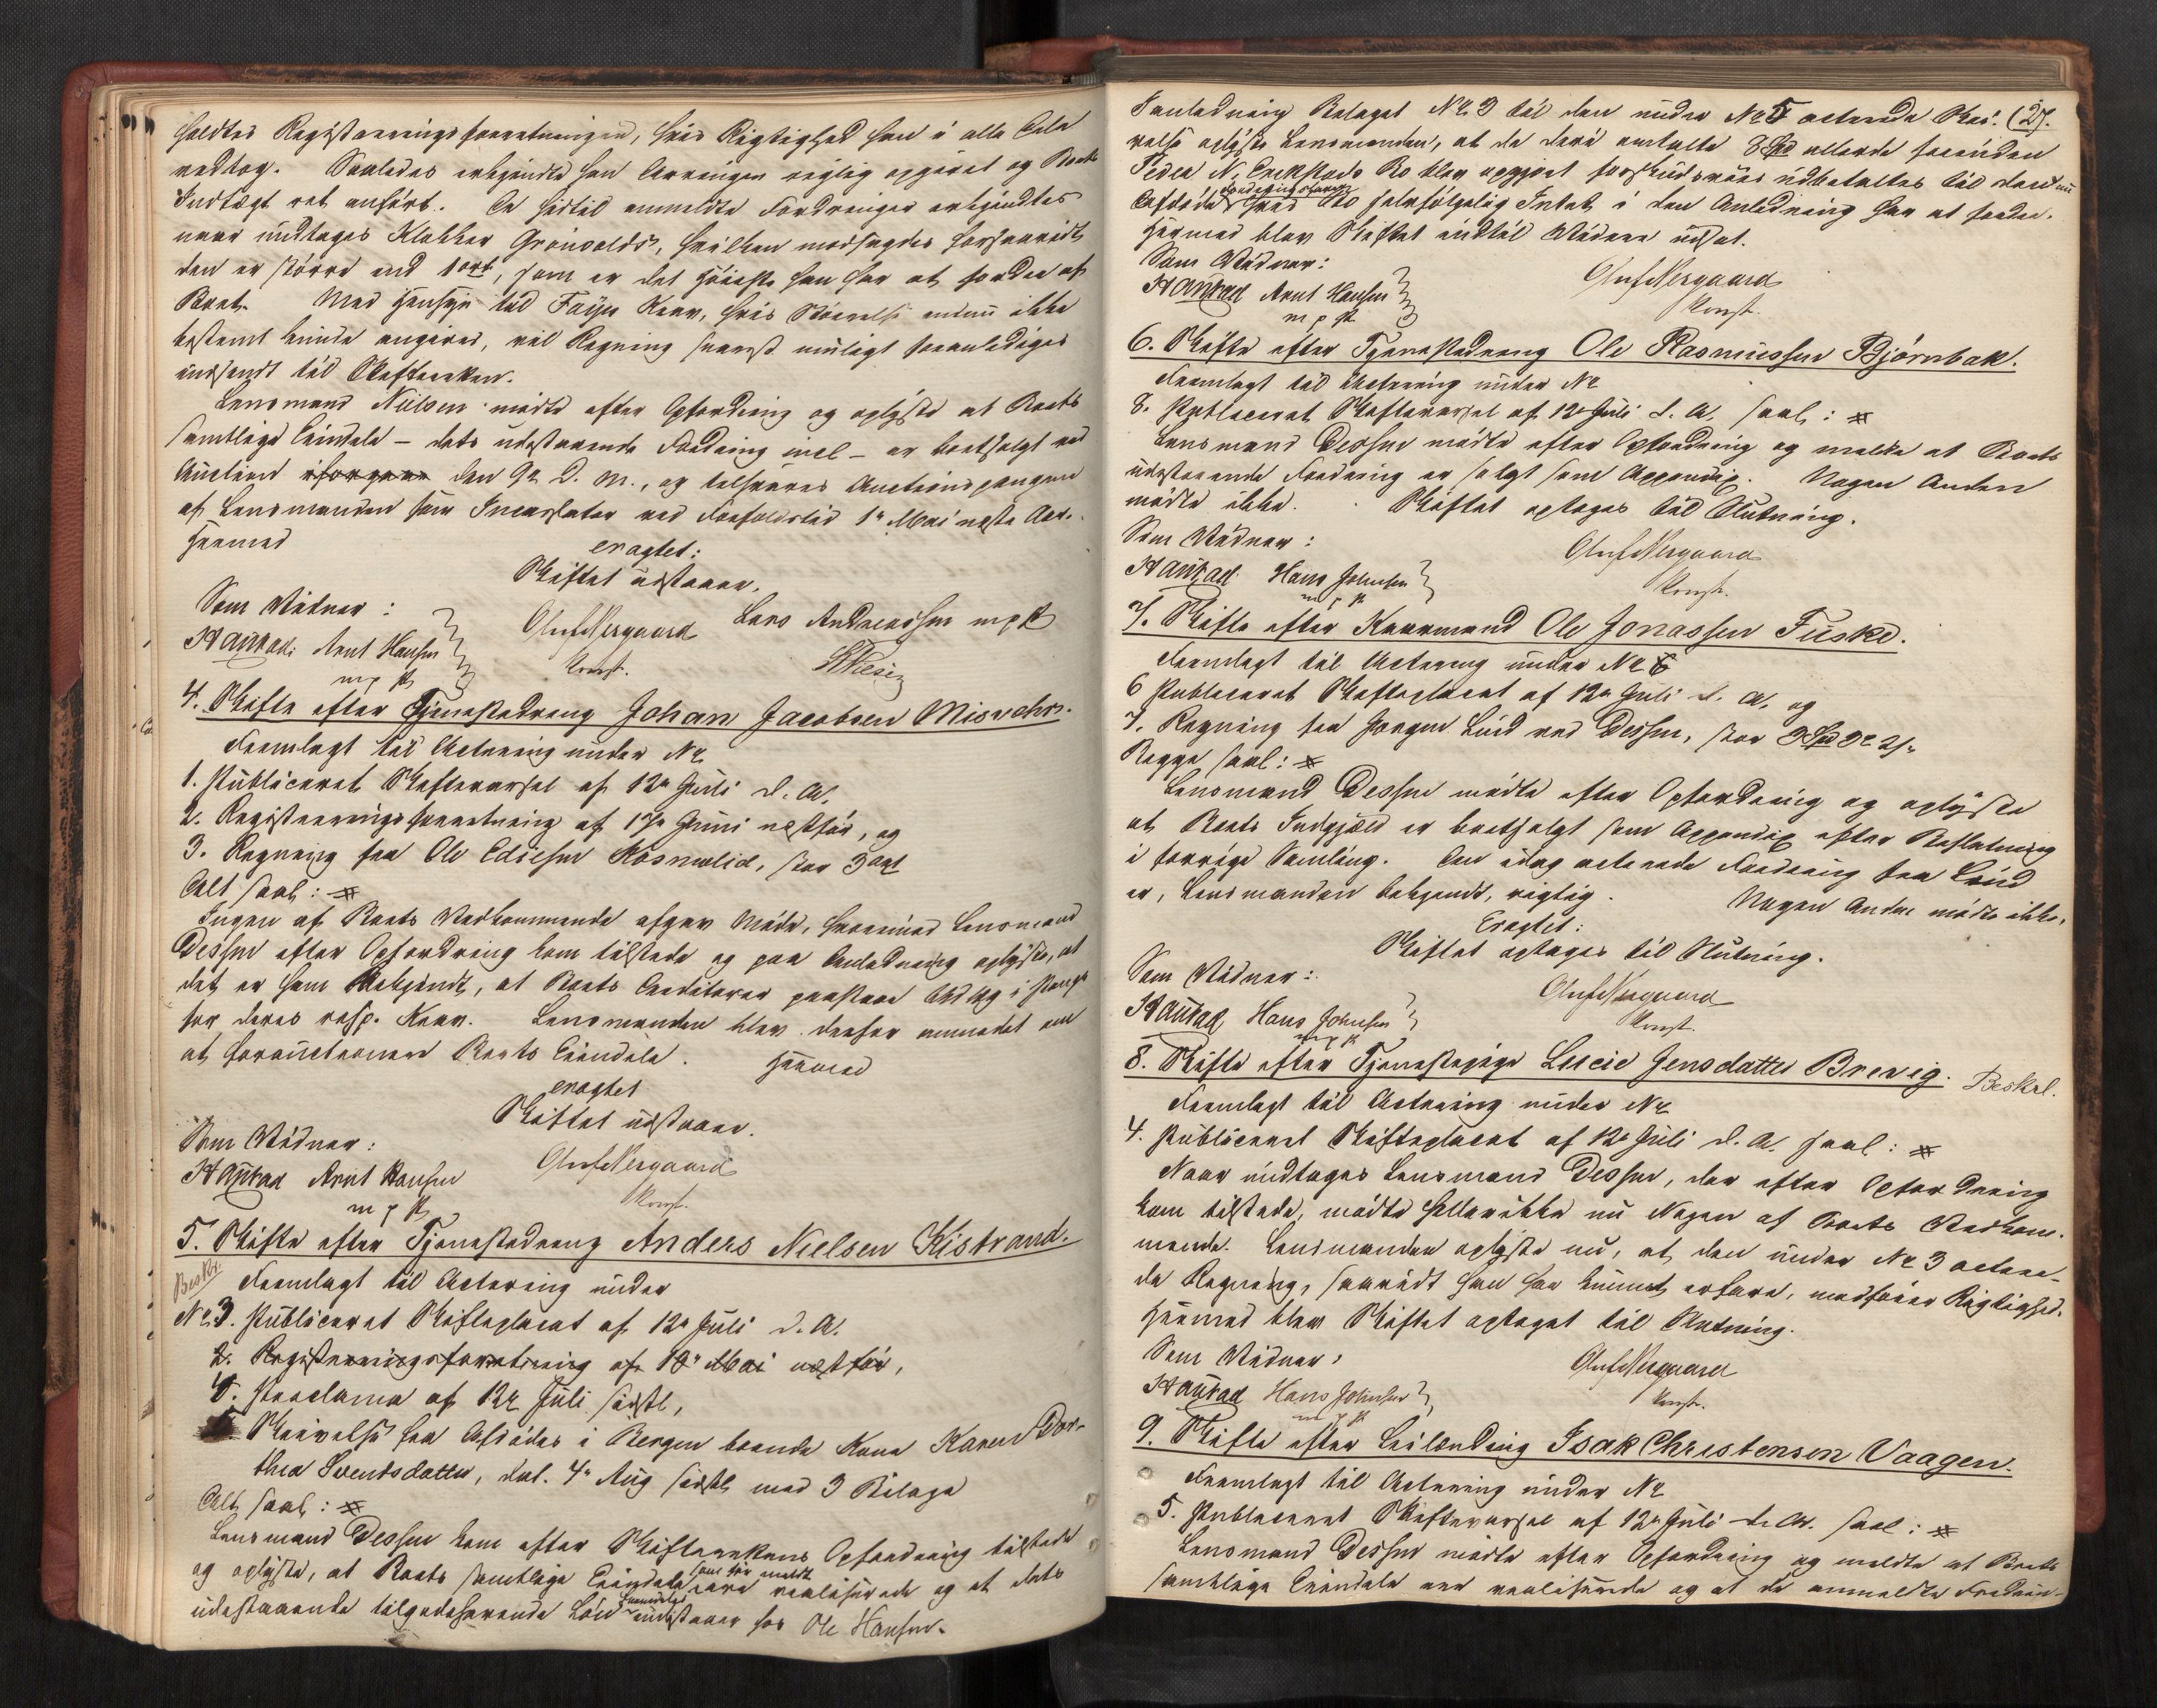 holdtes Registreringsforretningen, hvis Rigtighed han i alle Dele
vedtog. Saaledes erkjendte han Arvingen rigtig opgivet og Boets
Indtægt ret anført. De hidtil anmeldte Fordringer erkjendtes
naar undtages Klokker Grönvolds, hvilken modsagdes forsaavidt
den er större end 1 ort, som er det höieste han har at fordre af
Boet. Med Hensyn til Krav, hvis Störrelse endnu ikke
bestemt kunde angives, vil Regning snarest muligt foranlediges
indsendt til Skifteretten.
Lensmand Nilsen mödte efter Opfordring og oplyste at Boets
samtlige Eiendele – dets udestaaende Fordring incl – er bortsolgt ved
Auction den 9de d. M., og tilsvares Auctionspengene
af Lensmanden som Incassator ved Forfaldstid 1ste Mai næste Aar.
Hermed
eragtet:
Skiftet udstaaer.
Som Vidner:
Haurad. Arnt Hansen
m p P
Oluf Nergaard
Konst.
Lars Andreassen m p P
4. Skifte efter Tjenestedreng Johan Jacobsen Misvær.
Fremlagt til Actering under No
1. Publiceret Skiftevarsel af 12te Juli d. A.
2. Registreringsforretning af 17de Juni næstfør, og
3. Regning fra Ole Edisen Kosmolid, stor 3 ort
Alt saal:
Ingen af Boets Vedkommende afgav Möde, hvorimod Lensmand
Dessen efter Opfordring kom tilstede og paa Anledning oplyste, at
det er ham bekjendt, at Boets Creditorer paastaae Udlæg i Penge
for deres resp. Krav. Lensmanden blev derfor anmodet om
at forauctionere Boets Eiendele. Hermed
eragtet
Skiftet udstaaer.
Som Vidner:
Haurad Arnt Hansen
m p P
Oluf Nergaard
Konst.
5. Skifte efter Tjenestedreng Anders Nielsen Kistrand.
Beskr.
Fremlagt til Actering under
No 3. Publiceret Skifteplacat af 12te Juli d. A.
2. Registreringsforretning af 18de Mai næstför,
4. Proclama af 12te Juli sidstl,
Skrivelse fra Afdödes i Bergen boende Kone Karen Dor-
thea Sventsdatter, dat. 4de Aug sidstl. med 3 Bilage
Alt saal:
Lensmand Dessen kom efter Skifterettens Opfordring tilstede
og oplyste, at Boets samtlige Eiendele som för meldt ere realiserede og at dets
udestaaende tilgodehavende Lön fremdeles udestaaer hos Ole Hansen.
I Anledning Bilaget No 3 til den under No 5 acterede Skri- (27.
velse oplyste Lensmanden, at de deri omtalte 8 Spd allerede forinden
Peder N. Boe blev opgjort forskudsviis udbetaltes til den nu
Afdöde, hvis Bo selvfölgelig Intet i den Anledning har at fordre.
Hermed blev Skiftet indtil Videre udsat.
Som Vidner:
Haurad Arnt Hansen
m p P
Oluf Nergaard
Konst.
6. Skifte efter Tjenestedreng Ole Rasmussen Bjørnbak.
Fremlagt til Actering under No
8. Publiceret Skiftevarsel af 12te Juli d. A. saal:
Lensmand Dessen mödte efter Opfordring og meldte at Boets
udestaaende Fordring er solgt som Appendix. Nogen Anden
mödte ikke. Skiftet optages til Slutning.
Som Vidner:
Haurad. Hans Johnsen
m p P
Oluf Nergaard
Konst.
7. Skifte efter Kaarmand Ole Jonassen Fuske.
Fremlagt til Actering under No
6 Publiceret Skifteplacat af 12te Juli d. A. og
7. Regning fra Jörgen Lund ved Dessen, stor 3 Spd
Begge saal:
Lensmand Dessen mödte efter Opfordring og oplyste
at Boets Indgjæld er bortsolgt som Appendix efter Beslutning
i forrige Samling. Den idag acterede Fordring fra Lund
er, Lensmanden bekjendt, rigtig. Nogen Anden mödte ikke.
Eragtet:
Skiftet optages til Slutning.
Som Vidner:
Haurad Hans Johnsen
m p P
Oluf Nergaard
Konst.
8. Skifte efter Tjenestepige Lucie Jensdatter Brevig. Beskrl.
Fremlagt til Actering under No
4. Publiceret Skifteplacat af 12te Juli d. A. saal:
Naar undtages Lensmand Dessen, der efter Opfordring
kom tilstede, mödte hellerikke nu Nogen af Boets Vedkom-
mende. Lensmanden oplyste nu, at den under No 3 actere-
de Regning, saavidt han har kunnet erfare, medförer Rigtighed.
Hermed blev Skiftet optaget til Slutning.
Som Vidner:
Haurad Hans Johnsen
m p P
Oluf Nergaard
Konst.
9. Skifte efter Leilænding Isak Christensen Vaagen.
Fremlagt til Actering under No
5. Publiceret Skiftevarsel af 12te Juli d. A. saal:
Lensmand Dessen mödte efter Opfordring og meldte at Boets
samtlige Eiendele ere realiserede og at de anmeldte Fordrin-